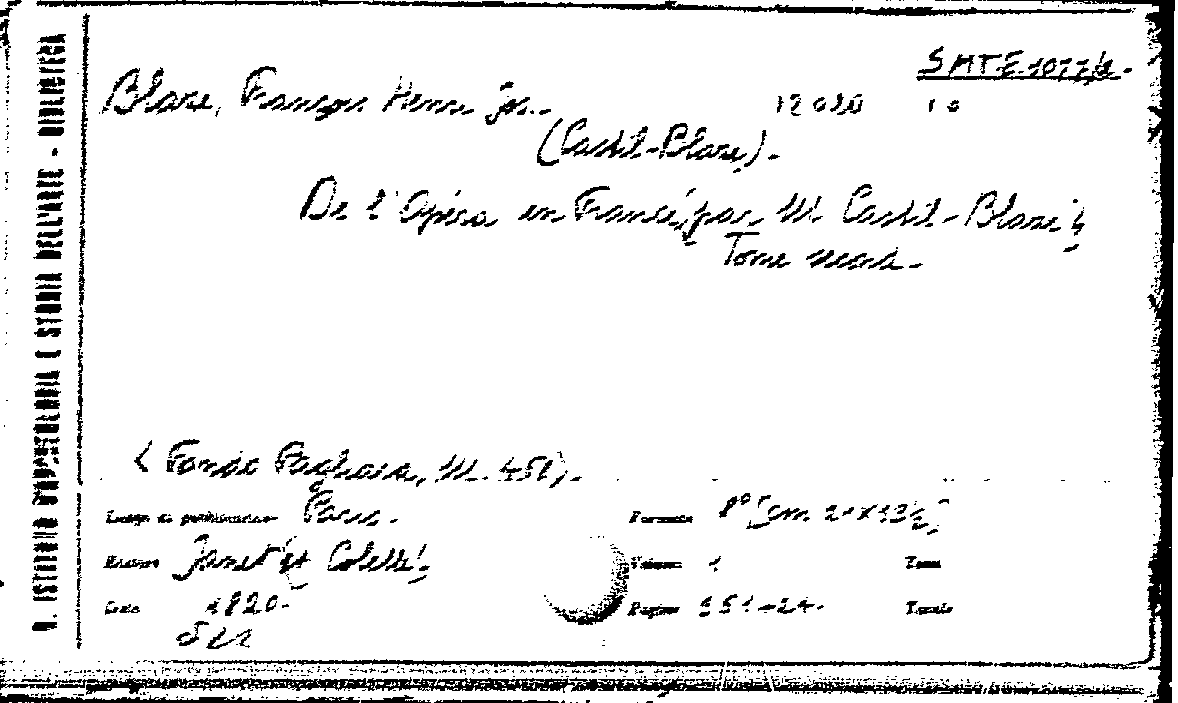 R. ISTITUTO D'ARCHEOLOGIA E STORIA DELL'ARTE - BIBLIOTECA
SMTE 1077/2.
Blaze, François Henri Jos. 12020 10
(Castil-Blaze).
De l'Opéra en France; par M. Castil-Blaze;
Tome second.
(Fondo Pagliara, M. 451).
Luogo di pubblicazione Paris. Formato 8° [cm 21x13½]
Editore Janet et Cotelle; Volume 1 Tomi
Data 1820. Pagine 351+24. Tavole